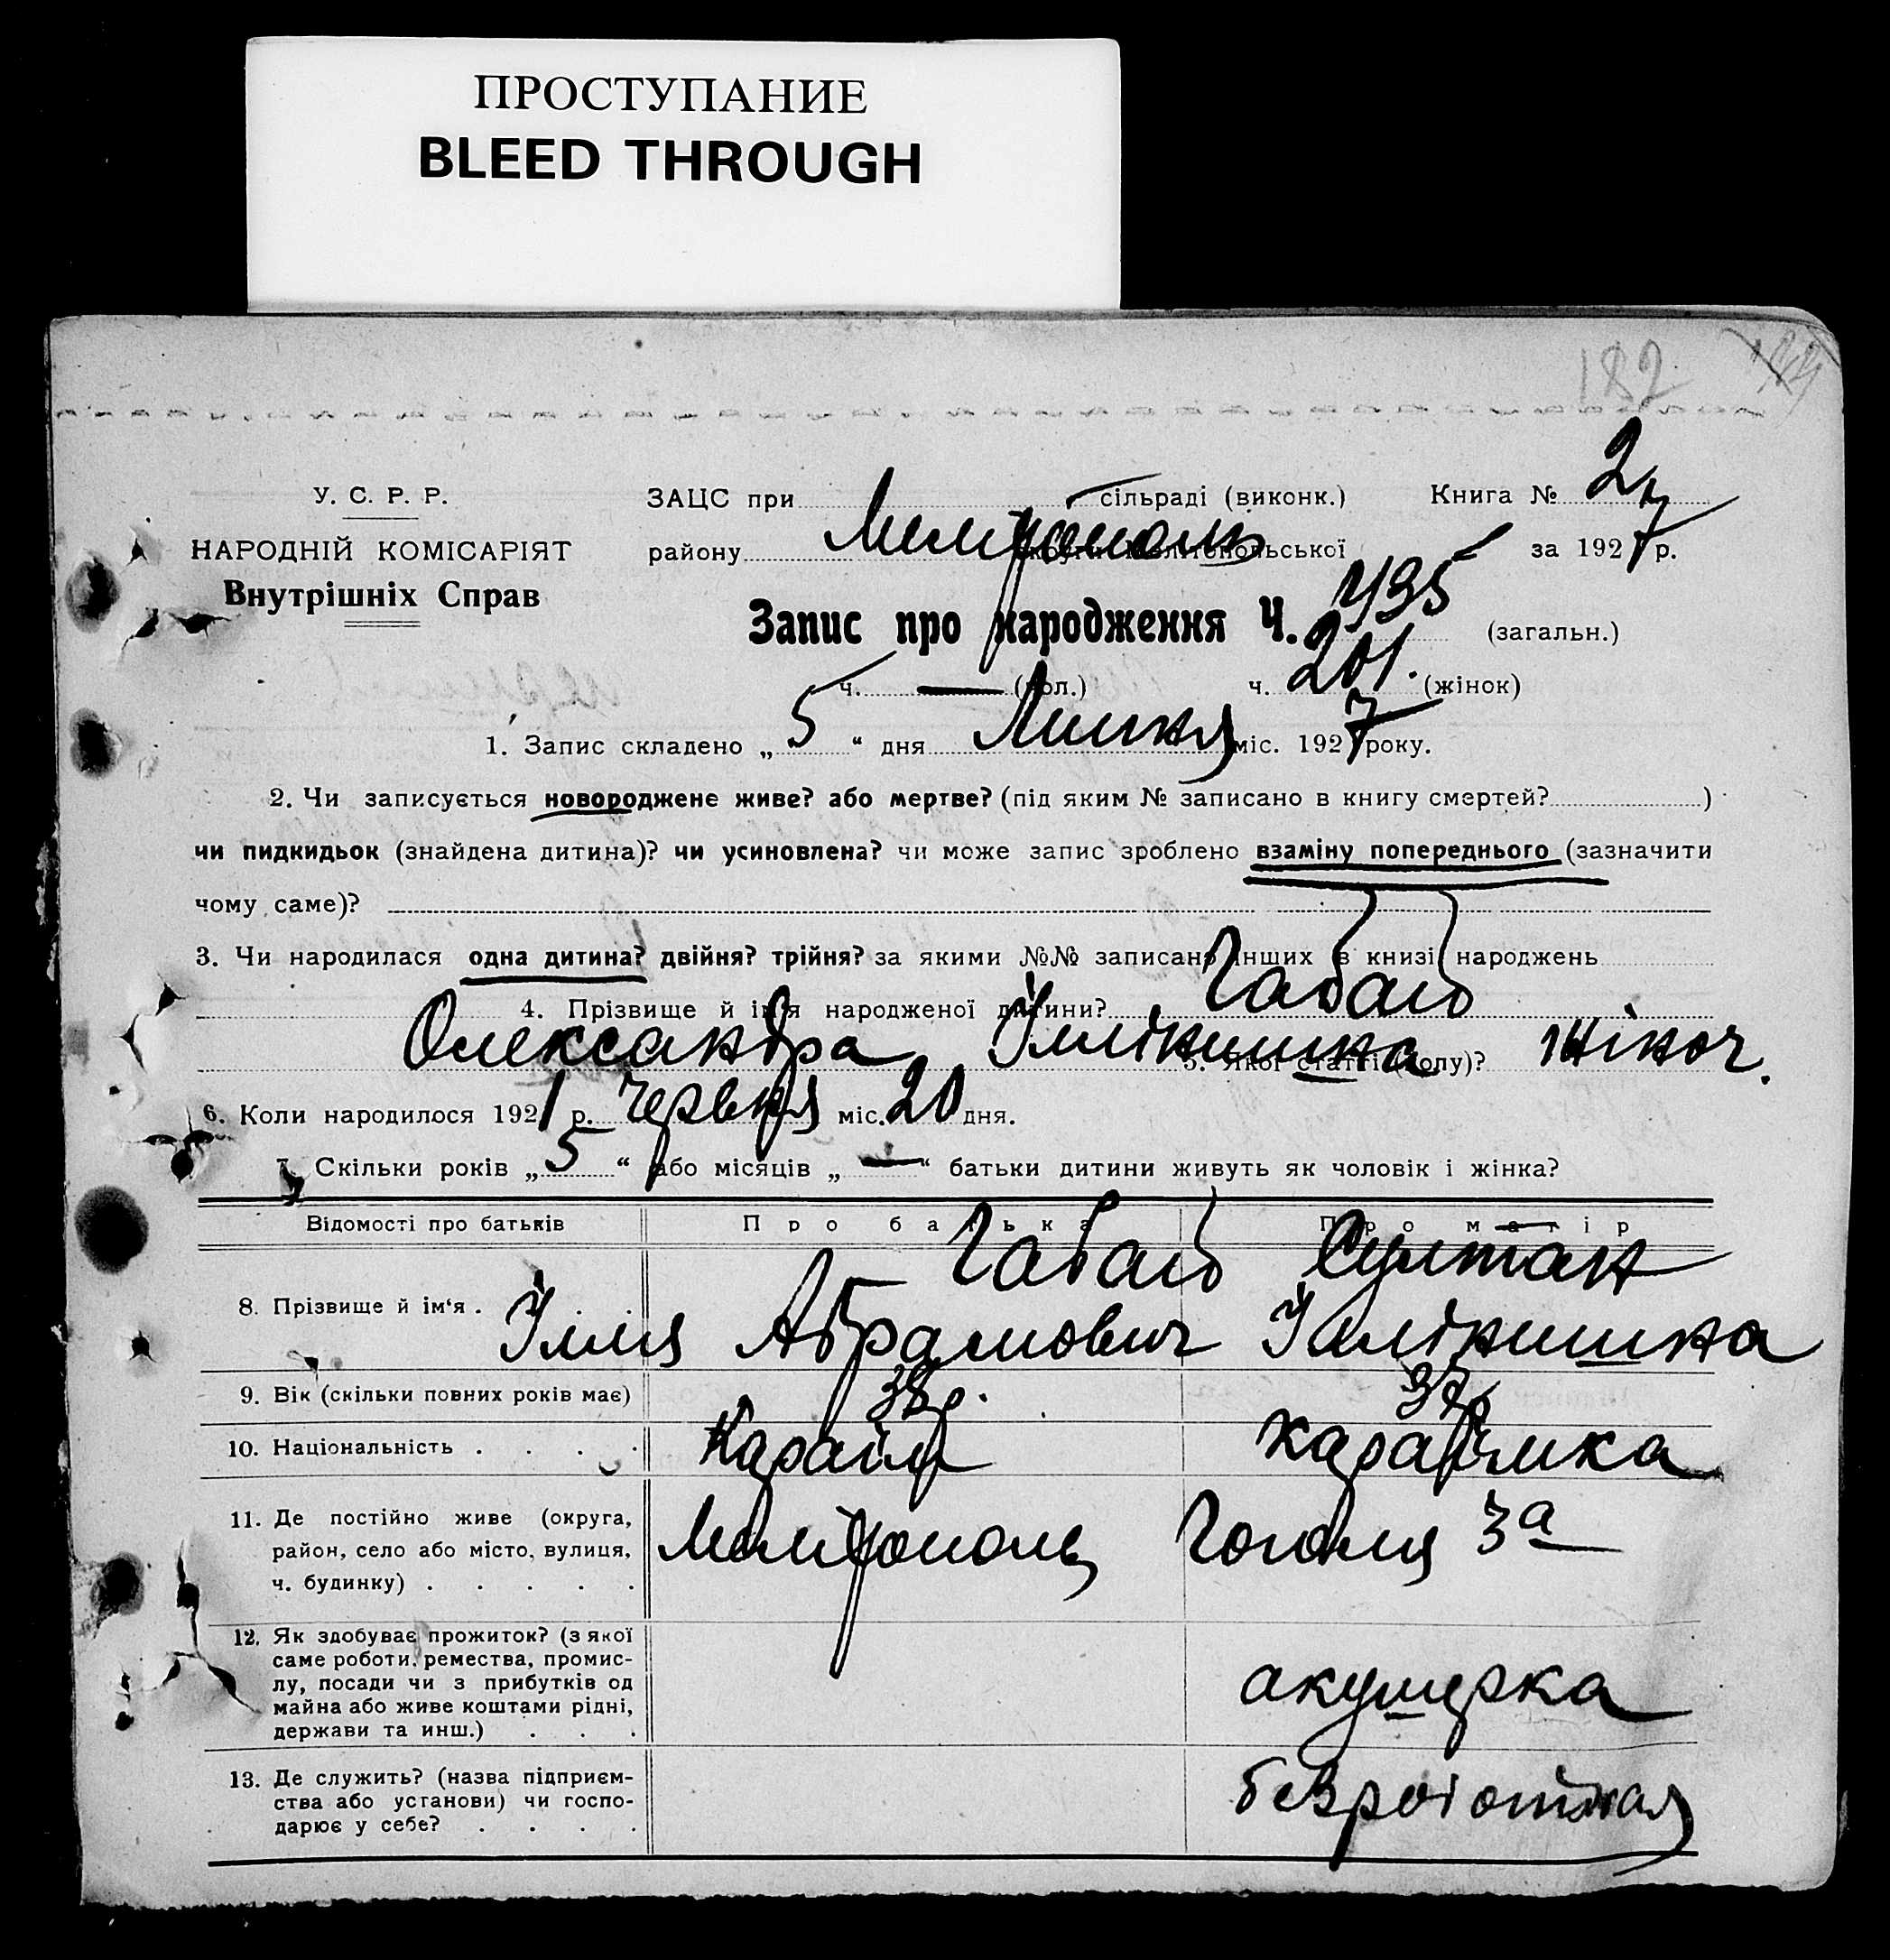 ПРОСТУПАНИЕ
BLEED THROUGH
182
У. С. Р. Р.
НАРОДНІЙ КОМІСАРІЯТ
Внутрішніх Справ
ЗАЦС при сільраді (виконк.) Книга № 2
району Мелітополь округи Мелітопольської за 1927 р.
Запис про народження Ч. 435 (загальн.)
ч. — (чол.) ч. 201. (жінок)
1. Запис складено „ 5 “ дня Липня міс. 1927 року.
2. Чи записується новороджене живе? або мертве? (під яким № записано в книгу смертей? )
чи пидкидьок (знайдена дитина)? чи усиновлена? чи може запис зроблено взаміну попереднього (зазначити
чому саме)?
3. Чи народилася одна дитина? двійня? трійня? за якими №№ записано інших в книзі народжень
4. Прізвище й ім'я народженої дитини? Габай
Олександра Іллінишна 5. Якої статті (полу)? жіноч.
6. Коли народилося 1921 р. червня міс. 20 дня.
7. Скільки років „ 5 “ або місяців „ — “ батьки дитини живуть як чоловік і жінка?
Відомості про батьків Про батька Про матір
8. Прізвище й ім‘я . Габай Ілля Абрамович Султан Іллінишна
9. Вік (скільки повних років має) 38 р. 37 р
10. Національність . . . . Караїм караїмка
11. Де постійно живе (округа,
район, село або місто, вулиця,
ч. будинку) . . . . .
Мелітополь Гоголя 3а
12. Як здобуває прожиток? (з якої
саме роботи, ремества, промис-
лу, посади чи з прибутків од
майна або живе коштами рідні,
держави та инш.) . . .
акушерка
13. Де служить? (назва підприєм-
ства або установи) чи госпо-
дарює у себе? . . . .
безроботная